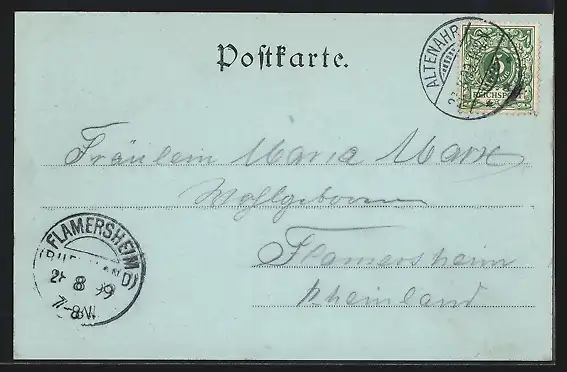 Postkarte.
ALTENAHR
5
REICHSPOST
Fräulein Maria Marx
Wohlgeboren
Flamersheim
Rheinland
FLAMERSHEIM
8 99
7-8V.